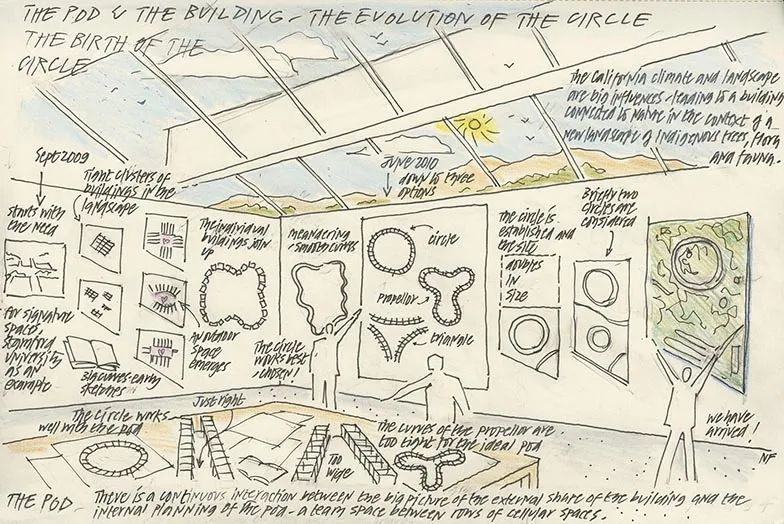 THE POD & THE BUILDING - THE EVOLUTION OF THE CIRCLE
THE BIRTH OF THE
CIRCLE
The California climate and landscape
are big influences - leading to a building
connected to nature in the context of a
new landscape of indigenous trees, flora
and fauna.
Sept 2009
starts with
the need
for signature
space,
Stanford
University
as an
example
Tight clusters of
buildings in the
landscape
Big curves - early
sketches
The individual
buildings join
up
An outdoor
space
emerges
meandering
- smoother curves
The circle
works best
- chosen!
June 2010
down to three
options
circle
propellor
triangle
The circle is
established and
the site
doubles
in
size
Briefly two
circles are
considered
we have
arrived!
NF
The circle works
well with the pod
Just right
Too
wide
The curves of the propellor are
too tight for the ideal pod
THE POD - There is a continuous interaction between the big picture of the external share of the building and the
internal planning of the pod - a team space between rows of cellular spaces.